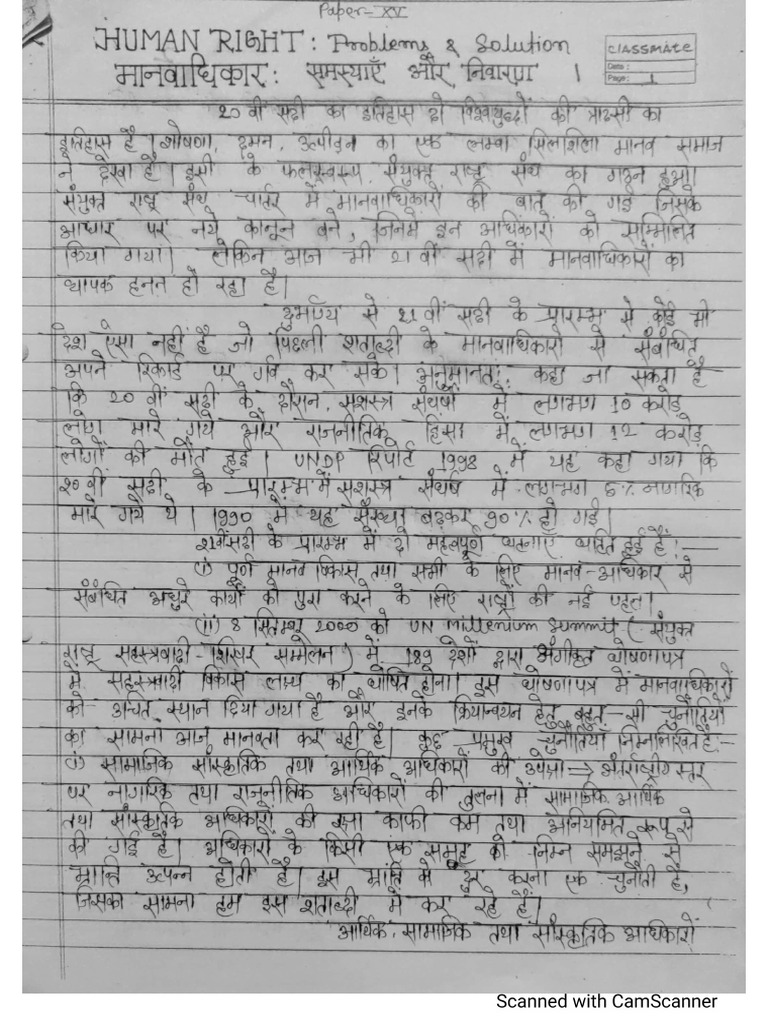 Paper-XV
HUMAN RIGHT: Problems & Solution
classmate
Date:
Page: 1
मानवाधिकार: समस्याएँ और निवारण 1
20 वीं सदी का इतिहास दो विश्वयुद्धों की त्रासदी का
इतिहास है। शोषण, दमन, उत्पीड़न का एक लम्बा सिलसिला मानव समाज
ने देखा है। इसी के फलस्वरूप संयुक्त राष्ट्र संघ का गठन हुआ।
संयुक्त राष्ट्र संघ चार्टर में मानवाधिकारों की बात की गई जिसके
आधार पर नये कानून बने, जिनमें इन अधिकारों को सम्मिलित
किया गया। लेकिन आज भी 21 वीं सदी में मानवाधिकारों का
व्यापक हनन हो रहा है।
दुर्भाग्य से 21 वीं सदी के प्रारम्भ से कोई भी
देश ऐसा नहीं है जो पिछली शताब्दी के मानवाधिकारों से संबंधित
अपने रिकार्ड पर गर्व कर सके। अनुमानतः कहा जा सकता है
कि 20 वीं सदी के दौरान, सशस्त्र संघर्षों में लगभग 10 करोड़
लोग मारे गये और राजनीतिक हिंसा में लगभग 12 करोड़
लोगों की मौत हुई। UNDP रिपोर्ट 1998 में यह कहा गया कि
20वीं सदी के प्रारम्भ में सशस्त्र संघर्ष में लगभग 5% नागरिक
मारे गये थे। 1990 में यह संख्या बढ़कर 90% हो गई।
21वीं सदी के प्रारम्भ में दो महत्वपूर्ण घटनाएँ घटित हुई हैं:—
(i) पूर्ण मानव विकास तथा सभी के लिए मानव-अधिकार से
संबंधित अधुरे कार्यों को पुरा करने के लिए राष्ट्रों की नई पहल।
(ii) 8 सितम्बर 2000 को UN Millenium Summit (-संयुक्त
राष्ट्र सहस्त्रवादी-शिखर सम्मेलन) में 189 देशों द्वारा अंगीकृत घोषणापत्र
में सहस्त्रवादी विकास लक्ष्य का घोषित होना। इस घोषणापत्र में मानवाधिकारों
को उचित स्थान दिया गया है और इनके क्रियान्वयन हेतु बहुत-सी चुनौतियों
का सामना आज मानवता कर रही है। कुछ प्रमुख चुनौतियाँ निम्नलिखित हैं:-
(i) सामाजिक सांस्कृतिक तथा आर्थिक अधिकारों की उपेक्षा → अंतर्राष्ट्रीय स्तर
पर नागरिक तथा राजनीतिक अधिकारों की तुलना में सामाजिक, आर्थिक
तथा सांस्कृतिक अधिकारों की रक्षा काफी कम तथा अनियमित रूप से
की गई है। अधिकारों के किसी एक समूह को निम्न समझने से
भ्रांति उत्पन्न होती है। इस भ्रांति को दूर करना एक चुनौती है,
जिसका सामना हम इस शताब्दी में कर रहे हैं।
आर्थिक, सामाजिक तथा सांस्कृतिक अधिकारों
Scanned with CamScanner